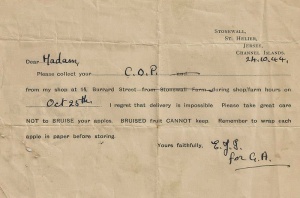 STONEWALL,
ST. HELIER,
JERSEY,
CHANNEL ISLANDS.
24.10.44.
Dear Madam,
Please collect your C.O.P.
from my shop at 15, Burrard Street from Stonewall Farm during shop/farm hours on
Oct 25th. I regret that delivery is impossible. Please take great care
NOT to BRUISE your apples. BRUISED fruit CANNOT keep. Remember to wrap each
apple in paper before storing.
Yours faithfully,
for G.A.